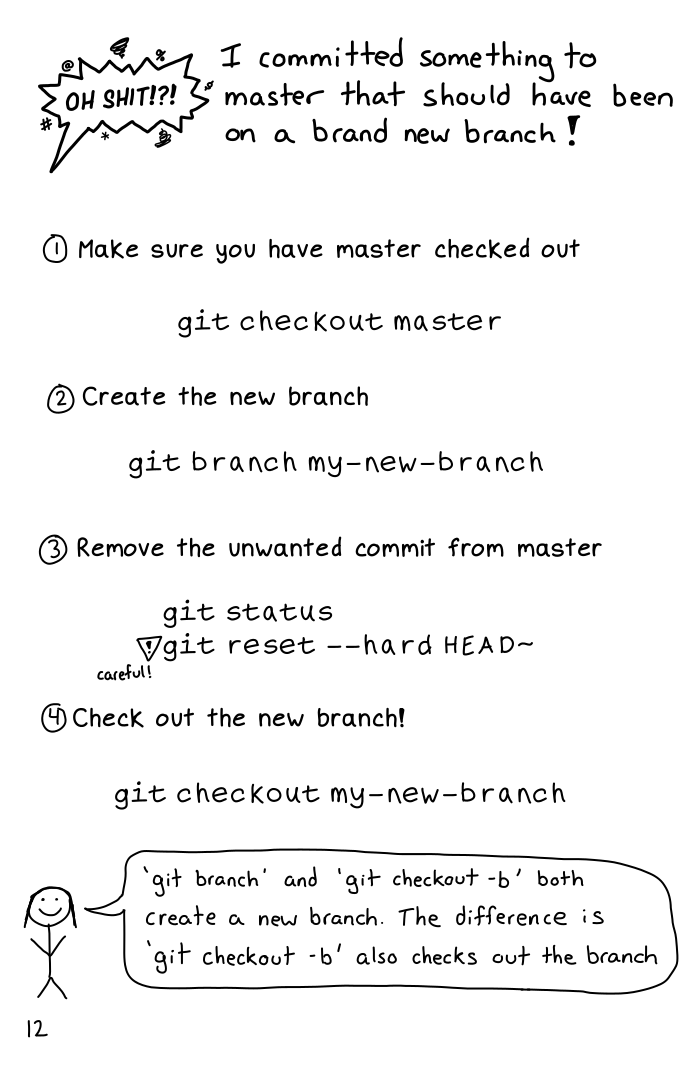 OH SHIT!?!
I committed something to
master that should have been
on a brand new branch!
① Make sure you have master checked out
git checkout master
② Create the new branch
git branch my-new-branch
③ Remove the unwanted commit from master
git status
! git reset --hard HEAD~
careful!
④ Check out the new branch!
git checkout my-new-branch
'git branch' and 'git checkout -b' both
create a new branch. The difference is
'git checkout -b' also checks out the branch
12